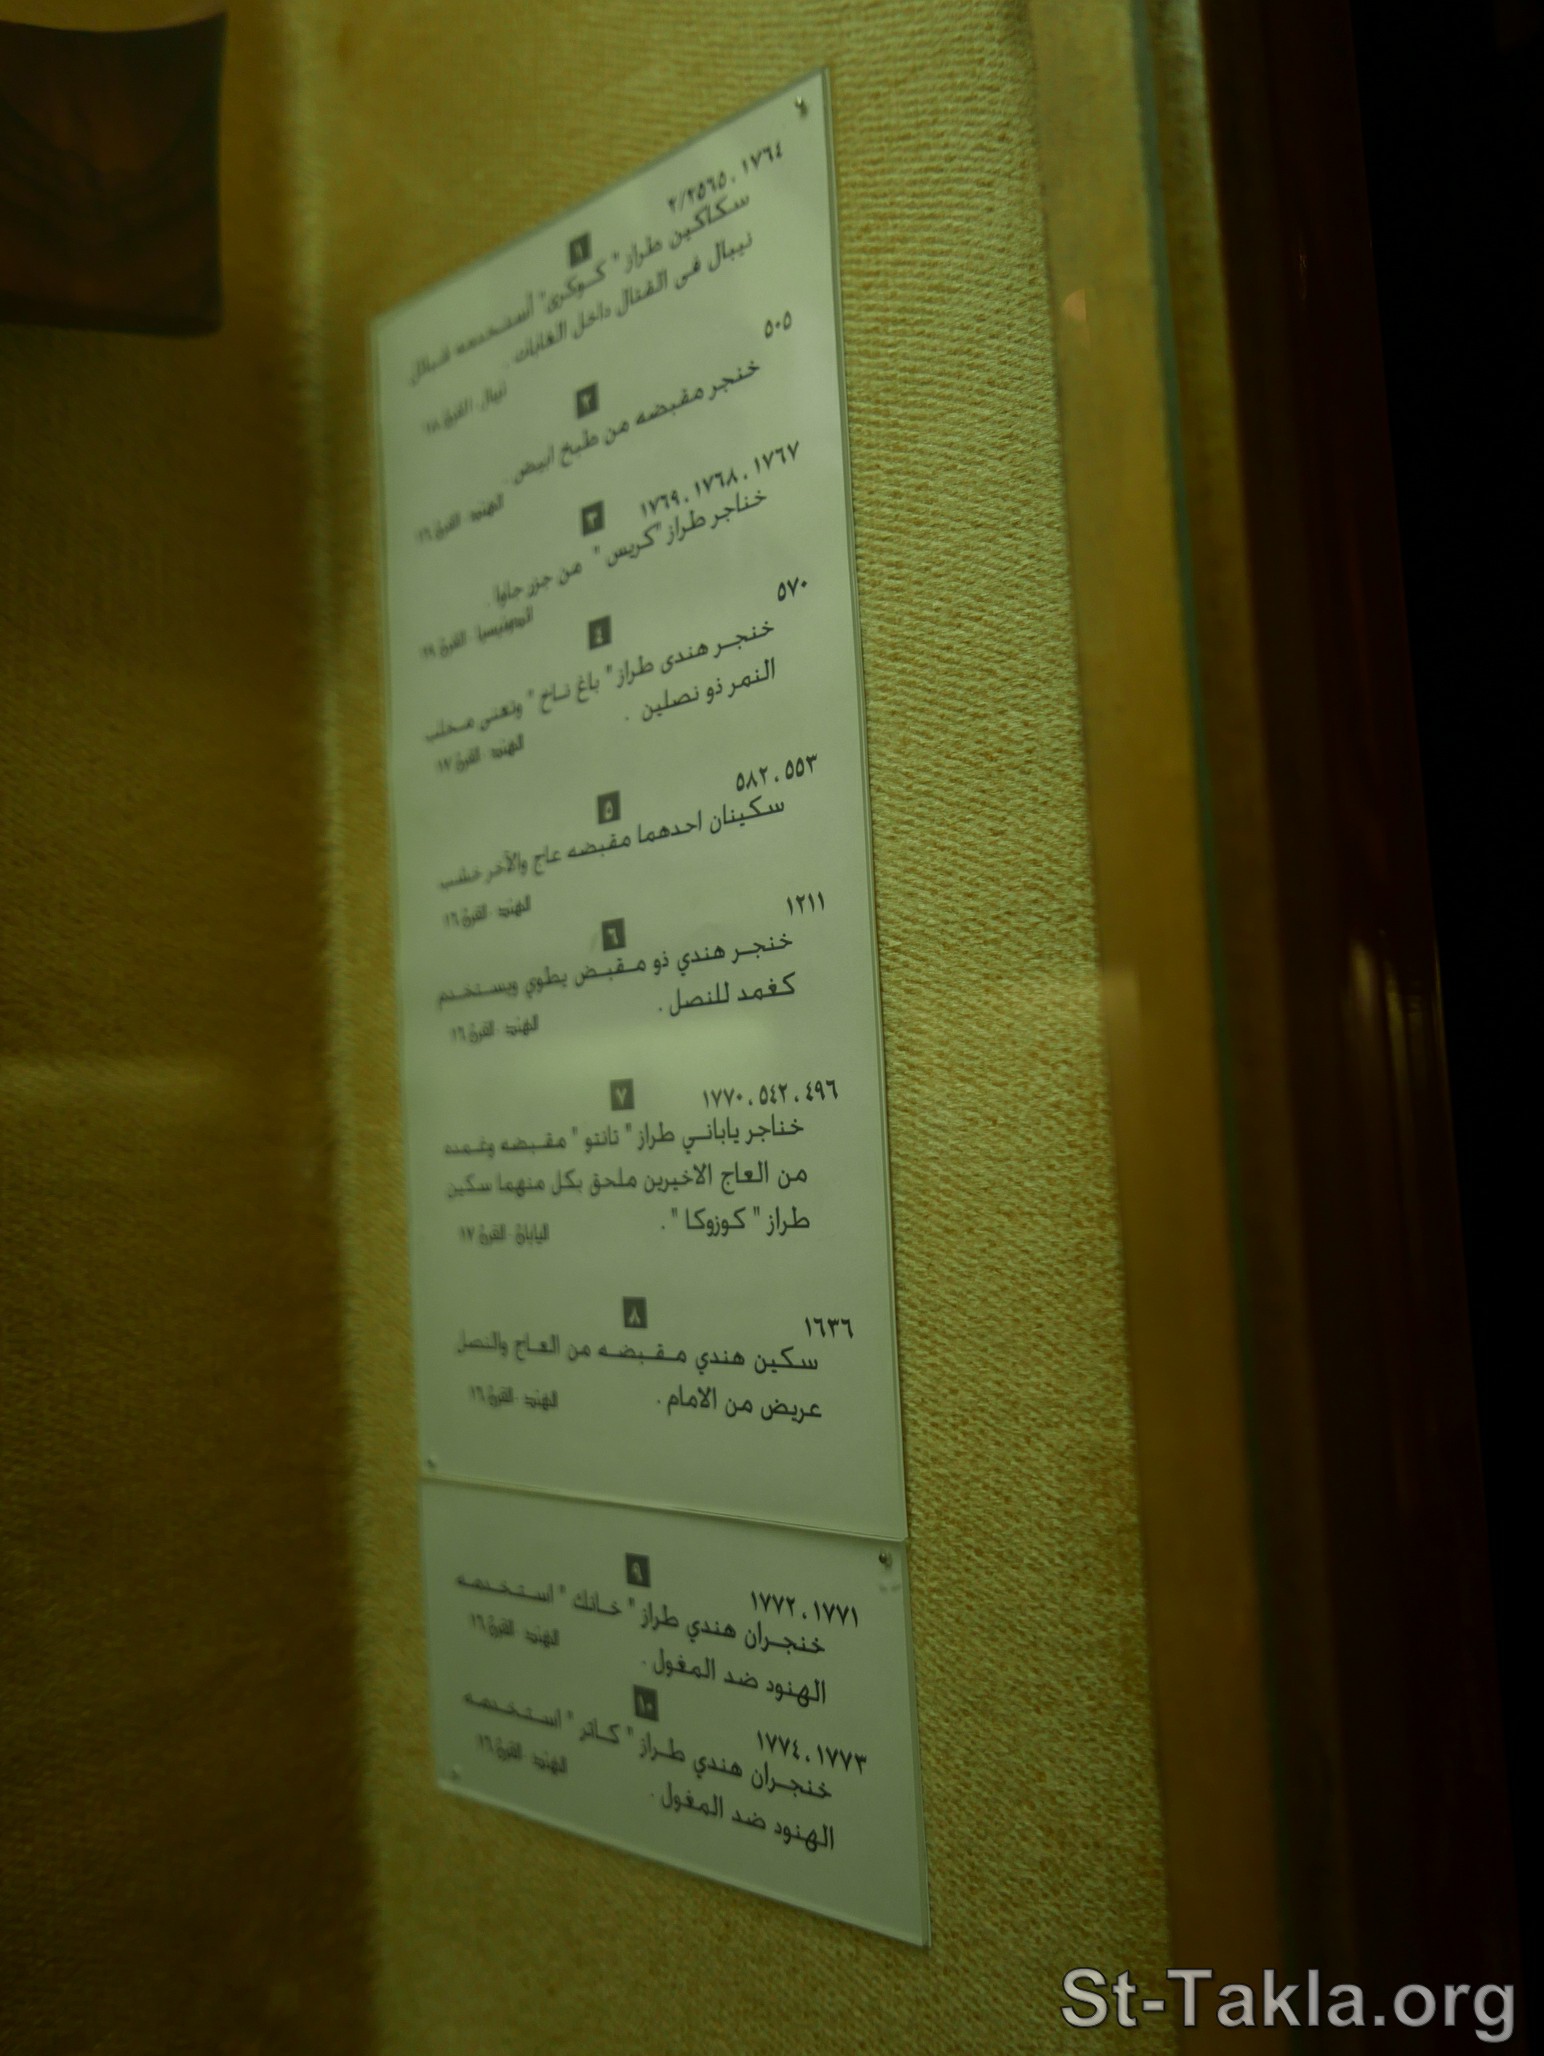 ١
١٧٦٤ ، ٢/٢٥٦٥
سكاكين طراز " كوكرى" أستخدمه قبائل
نيبال فى القتال داخل الغابات .
نيبال - القرن ١٨
٢
٥٠٥
خنجر مقبضه من طبخ ابيض .
الهند - القرن ١٦
٣
١٧٦٧ ، ١٧٦٨ ، ١٧٦٩
خناجر طراز "كريس " من جزر جاوا .
اندونيسيا - القرن
٤
٥٧٠
خنجر هندى طراز " باغ ناخ " وتعنى مخلب
النمر ذو نصلين .
الهند - القرن ١٧
٥
٥٥٣ ، ٥٨٢
سكينان احدهما مقبضه عاج والآخر خشب
الهند - القرن ١٦
٦
١٢١١
خنجر هندي ذو مقبض يطوي ويستخدم
كغمد للنصل .
الهند - القرن ١٦
٧
٤٩٦ ، ٥٤٢ ، ١٧٧٠
خناجر ياباني طراز " تانتو " مقبضه وغمده
من العاج الاخيرين ملحق بكل منهما سكين
طراز " كوزوكا " .
اليابان - القرن ١٧
٨
١٦٣٦
سكين هندي مقبضه من العاج والنصل
عريض من الامام .
الهند - القرن ١٦
٩
١٧٧١ ، ١٧٧٢
خنجران هندي طراز " خانك " استخدمه
الهنود ضد المغول .
الهند - القرن ١٦
١٠
١٧٧٣ ، ١٧٧٤
خنجران هندي طراز " كاتر " استخدمه
الهنود ضد المغول .
الهند - القرن ١٦
St-Takla.org